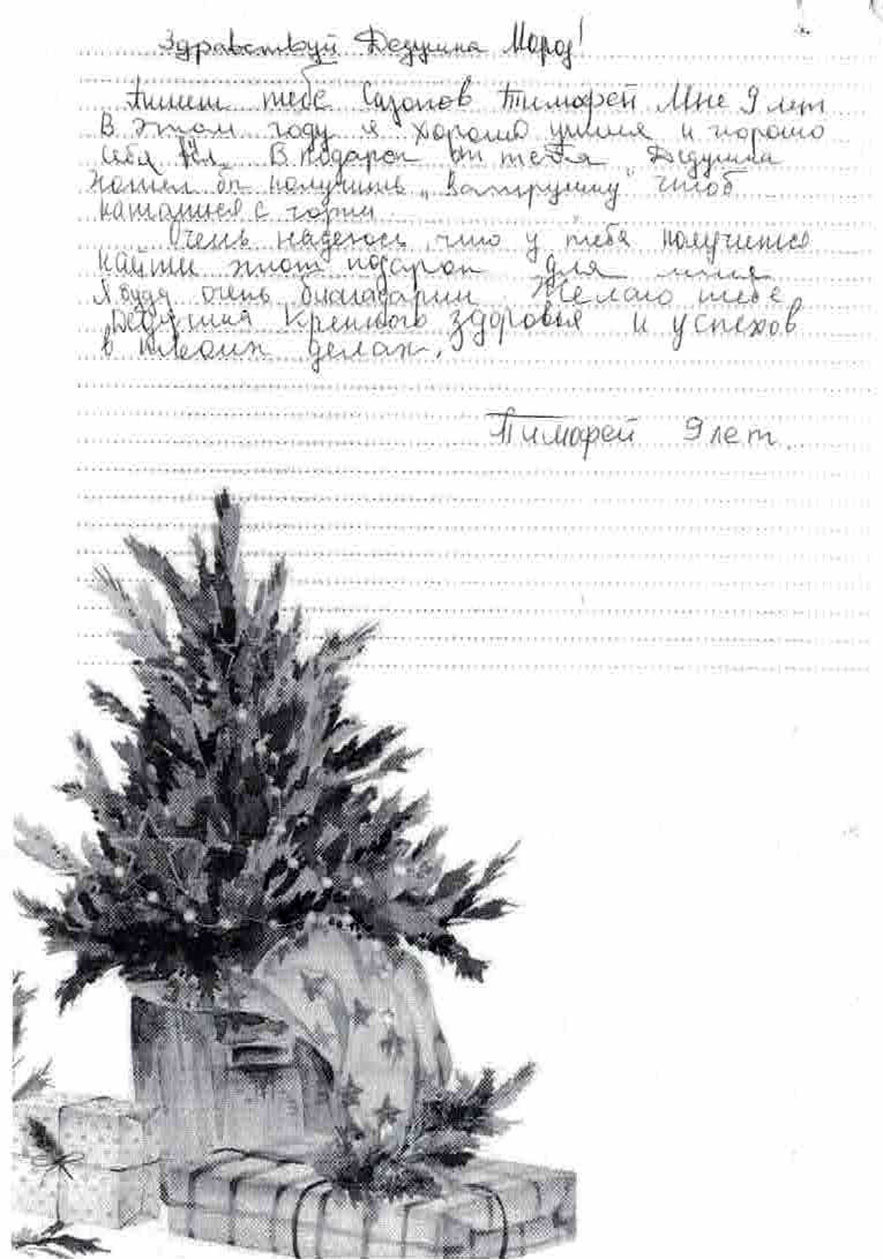 Здравствуй Дедушка Мороз!
Пишет тебе Сазонов Тимофей Мне 9 лет
В этом году я хорошо учился и хорошо
себя вёл. В подарок от тебя Дедушка
хотел бы получить "ватрушку" чтоб
кататься с горки
Очень надеюсь что у тебя получится
найти этот подарок для меня
Я буду очень благодарен Желаю тебе
Дедушка крепкого здоровья и успехов
в твоих делах.
Тимофей 9 лет.